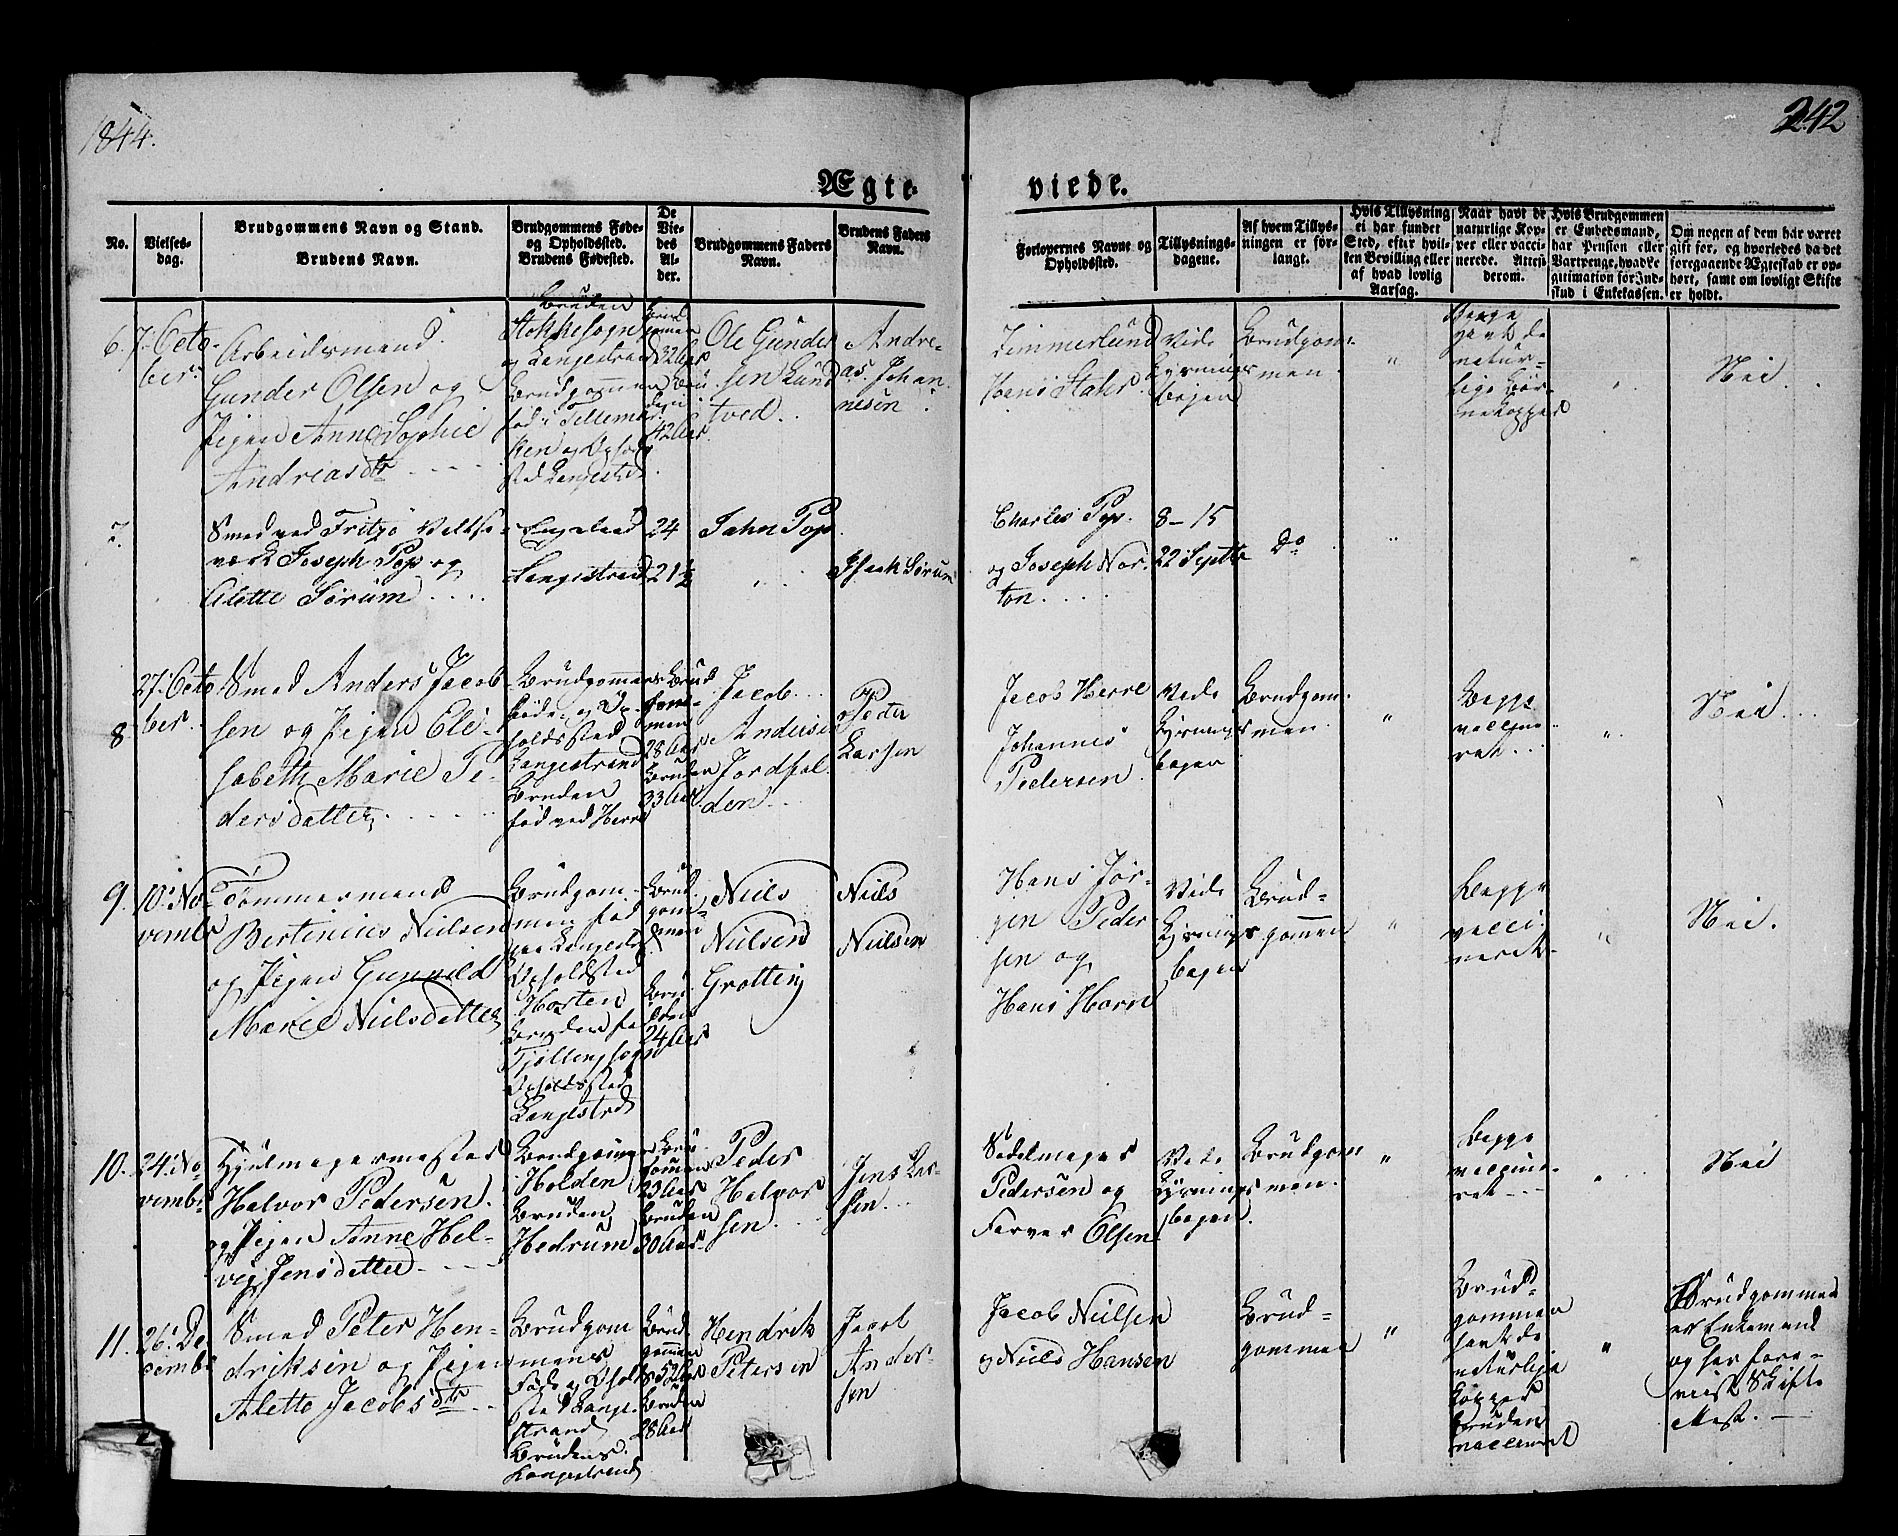 1844.
242
Ægte-
viede.
No.
Vielses-
dag.
Brudgommens Navn og Stand.
Brudens Navn.
Brudgommens Føde-
og Opholdssted.
Brudens Fødested.
De
Vie-
des
Al-
der.
Brudgommens Faders
Navn.
Brudens Faders
Navn.
Forlovernes Navne og
Opholdssted.
Tillysnings-
dagene.
Af hvem Tillys-
ningen er for-
langt.
Hvis Tillysning
ei har fundet
Sted, efter hvil-
ken Bevilling eller
af hvad lovlig
Aarsag.
Naar havt de
naturlige Kop-
per eller vacci-
nerede. Attest
derom.
Hvis Brudgommen
er Embedsmand,
har Pension eller
Vartpenge, hvad Le-
gitimation for Ind-
skud i Enkekassen.
Om nogen af dem har været
gift før, og hvorledes da det
foregaaende Ægteskab er op-
hørt, samt om lovligt Skifte
er holdt.
6.
7. Octo-
ber.
Arbeidsmand
Gunder Olsen og
Pigen Anne Sophie
Andreasdtr
Bruden
Stokkesogn
og Langestrand
Brudgommen
fød i Tellemar-
ken og Ophold-
sted Langestrd
Brud
gommen
32 Aar
Bru-
den
42 Aar
Ole Gunder
sen Lund
tved.
Andre-
as Johan-
nesen
Zimmerlund
Hans Stahr
Vide
Lysnings
bogen
Brudgom-
men
"
Begge
havt de
natur-
lige Bør-
nekopper
Nei
7.
Smed ved Fritzø Valtse-
værk Joseph Pop og
Alette Sørum
England
Langestrand
24
21½
John Pop
Isach Sørum
Charles Pop.
og Joseph Nor-
ton.
8-15
22 Septbr
Do
"
8
27. Octo
ber.
Smed Anders Jacob-
sen og Pigen Eli-
sabeth Marie Pe-
dersdatter
Brudgommens
Føde- og Op-
holdssted
Langestrand
Bruden
fød ved Herre
Brud
gom-
men
28 Aar
Bruden
33 Aar
Jacob
Anderse
Jordfal-
den
Peder
Larsen
Jacob Herre
Johannes
Pedersen
Vide
Lysnings
bogen
Brudgom-
men
"
Begge
vaccine-
ret
"
Nei
9.
10. No-
vembr
Tømmermand
Bertinius Nielsen
og Pigen Gunnild
Marie Nielsdatter
Brudgom-
men fød
paa Langestrd
Opholdsted
Horten
Bruden fød
Tjølling sogn
Opholdssted
Langestrd
Brud-
gom-
men
Bru-
den
24 Aar
Niels
Nielsen
Grotting
Niels
Nielsen
Hans Jør-
gen Peder
sen og
Hans Horn
Vide
Lysnings
bogen
Brud-
gommen
"
Begge
vacci-
neret
"
Nei.
10.
24. No
vembr
Hjulmagermester
Halvor Pedersen
og Pigen Anne Hel-
vig Jensdatter
Brudgommen
Holden
Bruden
Hedrum
Bru-
gommen
23 Aar
Bruden
30 Aar
Peder
Halvor
sen
Jens Lar-
sen
Sadelmager
Pedersen og
Farver Olsen
Vide
Lysnings
bogen
Brudgom
men.
"
Begge
vaccine-
ret
"
Nei
11.
26. De
cembr
Smed Peter Hen-
driksen og Pigen
Alette Jacobsdtr
Brudgom
mens
Føde og Ophold
sted Lange-
strand
Brudens
Langestrand
Brud-
gommen
52 Aar
Bruden
28 Aar
Hendrik
Petersen
Jacob
Ander-
sen
Jacob Nielsen
og Niels Hansen
Brud-
gommen
"
Brud-
gommen
havt de
naturlige
Kopper
Bruden
vaccineret
"
Brudgommen
er Enkemand
og har fore-
viist Skifte
Attest.